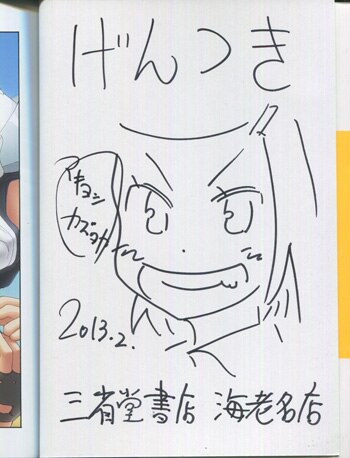 げんつき
アキヨシ
カズタカ
2013.2.
三省堂書店 海老名店